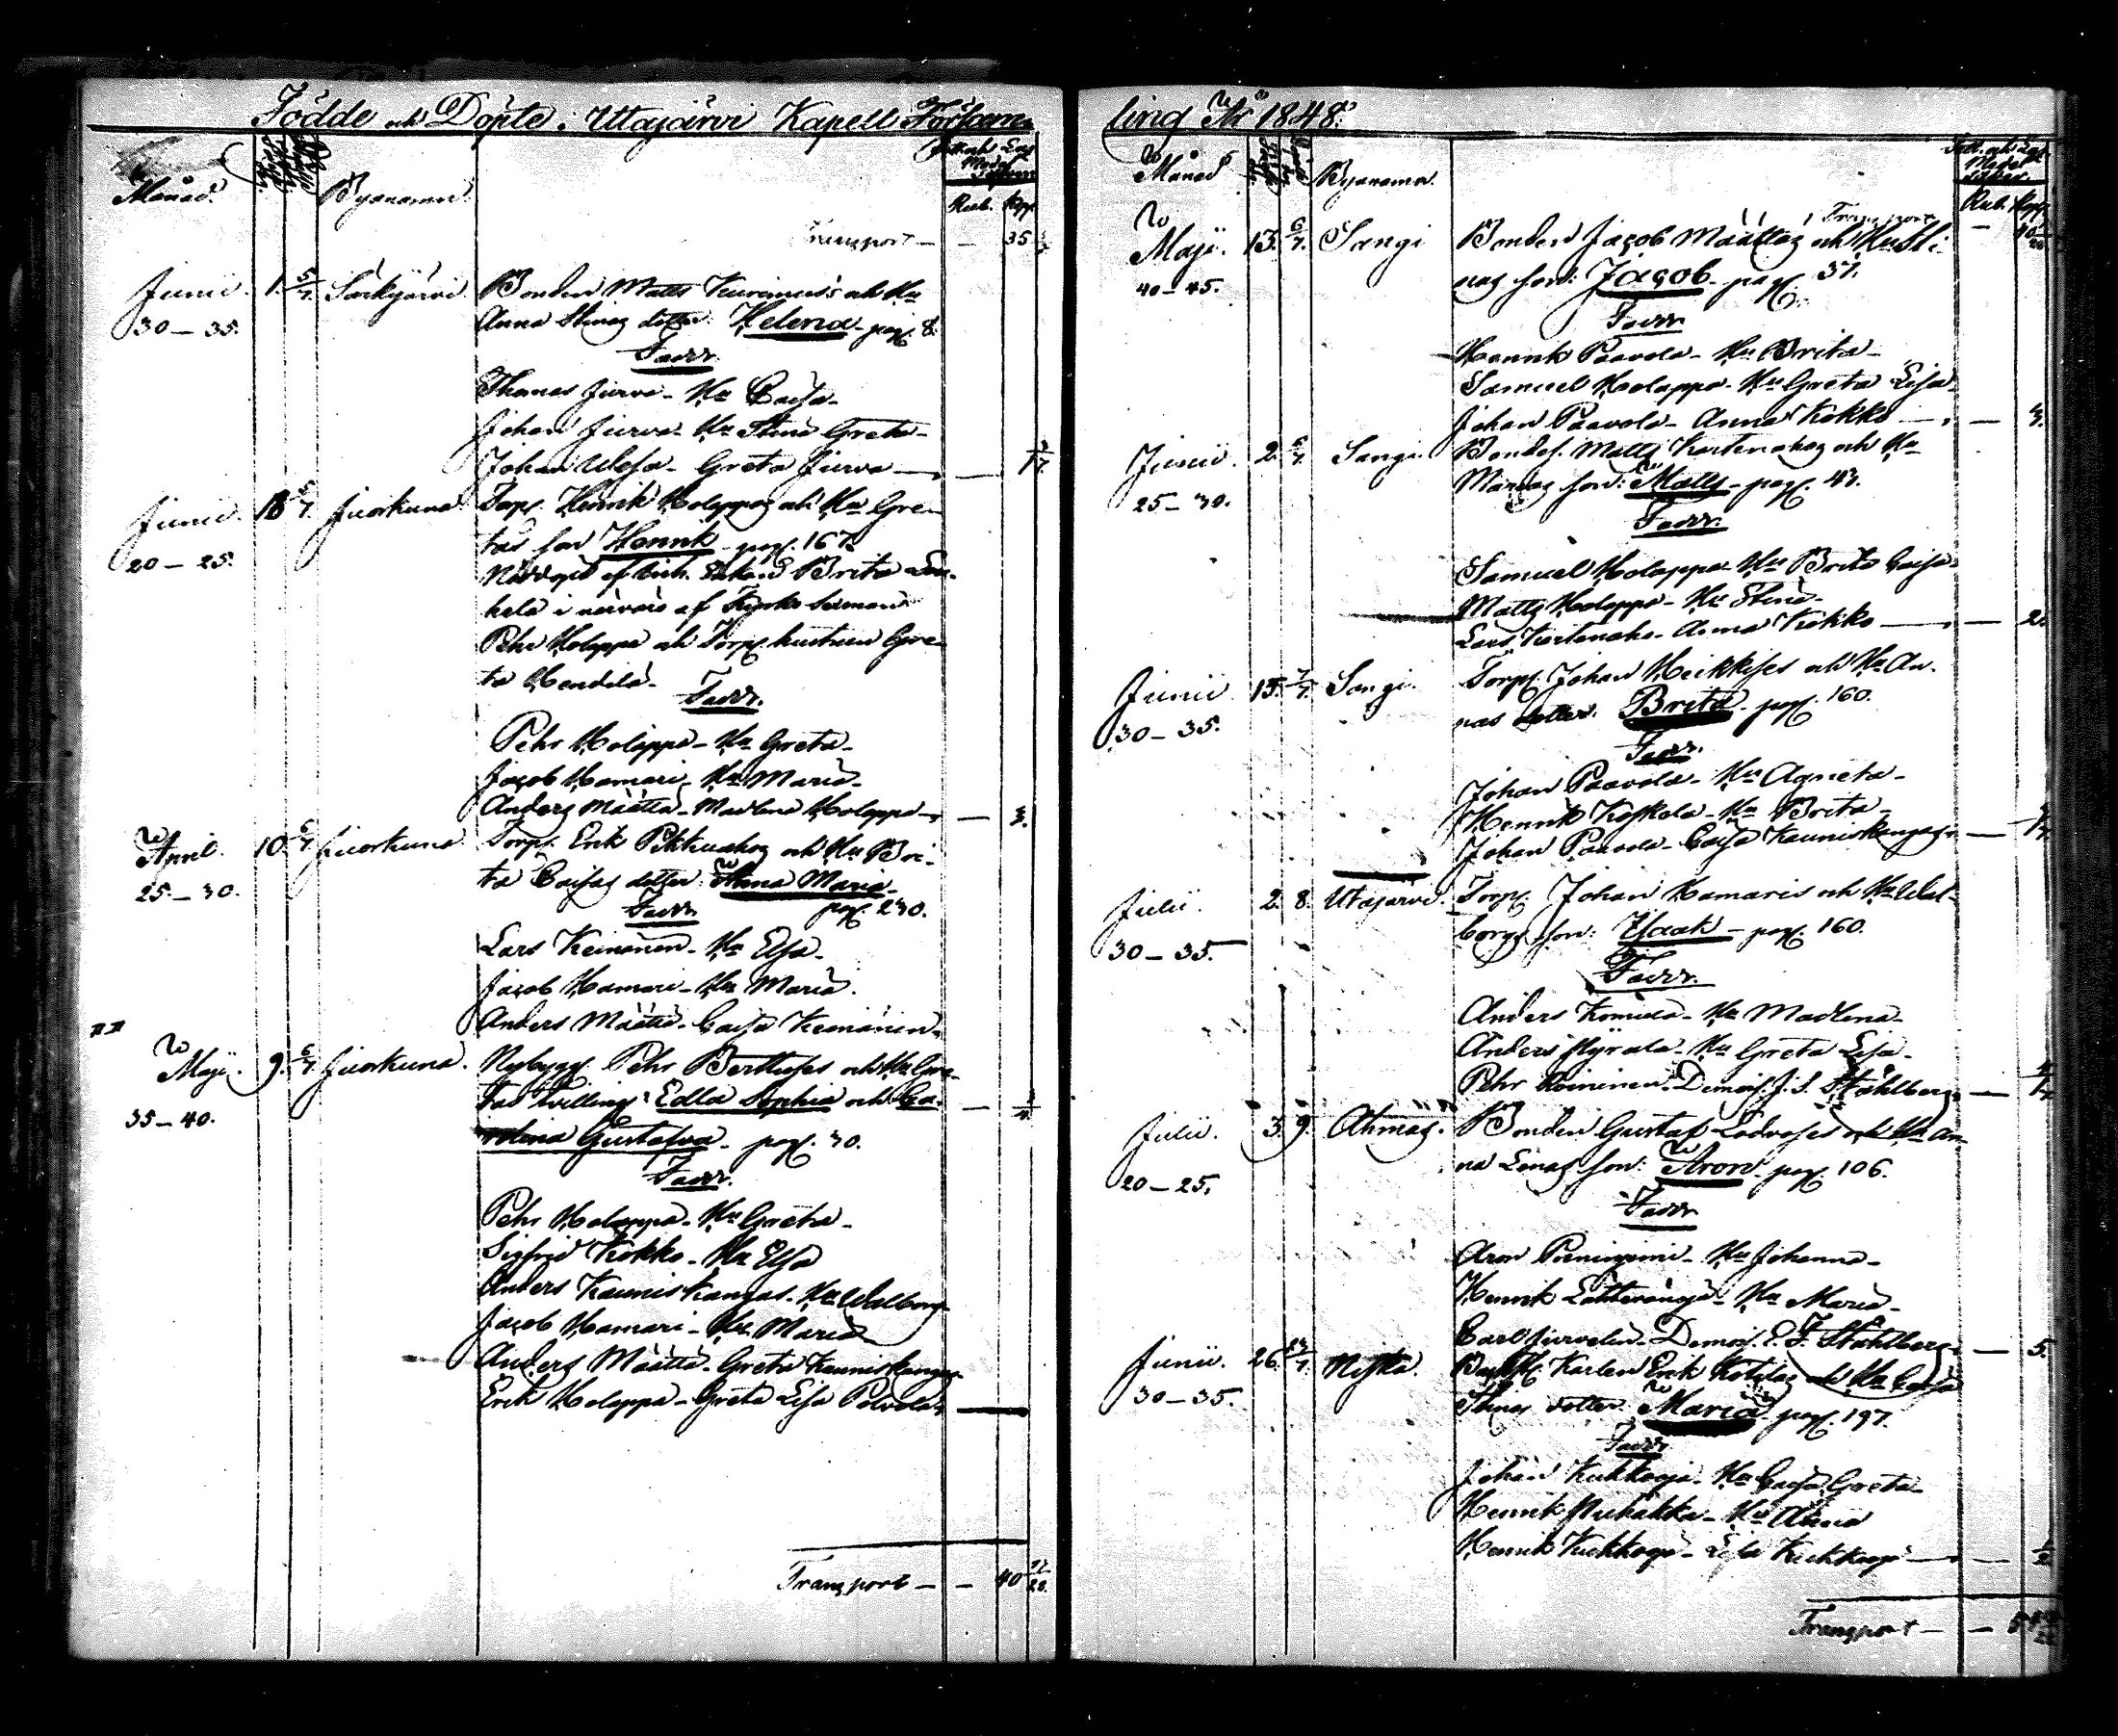 Födde och Döpte i Uttajärvi Kapell Församling År 1848.
Månad. Byanamn. Rub. Kop.
Transport — — 35
Junii. 1. 5/7. Särkijärvi. Bonden Matts Kurimus's och Hu
30 — 35. Anna Stinas dotter: Helena - pag. 8.
Faddr.
Thomas Jurva - Hu Caisa -
Johan Jurva - Hu Stina Greta -
Johan Ulessa - Greta Jurva — —
Junii. 18 5/7. Juorkuna Torp. Henrik Holappas och Hu Gre-
20 — 25. tas son Henrik - pag. 167.
Nöddöpt af Enkan Brita
hela i närvaro af Kyrko
Pehr Holappa och Torp. hustrun Gre-
ta Hendela.
Faddr.
Pehr Holappa - Hu Greta -
Jacob Hamari - Hu Maria -
Anders Määttä - Madlena Holappa — 3.
April. 10. 6/7 Juorkuna Torp. Erik Pikkuahos och Hu Bri-
25 — 30. ta Caisas dotter: Anna Maria -
Faddr. pag. 230.
Lars Keinänen - Hu Elsa -
Jacob Hamari - Hu Maria.
Anders Määttä - Caisa Keinänen -
Maji. 9. 6/7 Juorkuna. Nybygg. Pehr Berttuses och Hu Gre-
35 — 40. tas tvilling: Edla Sophia och Ca-
rolina Gustafva - pag. 30.
Faddr.
Pehr Holappa - Hu Greta -
Sigfrid Kokko - Hu Elsa
Anders Kauniskangas - Hu Walborg
Jacob Hamari - Hu Maria
Anders Määttä - Greta Kauniskangas
Erik Holappa - Greta Lisa Polvela —
Transport — — 40
Månad Byanamn. Rub. Kop.
Transport
Maji. 13. 6/7. Sangi Bonden Jacob Määttäs och Hu Sti- — 40
40 — 45. nas son: Jacob - pag. 37.
Faddr
Henrik Paavola - Hu Brita -
Samuel Holappa - Hu Greta Lisa
Johan Paavola - Anna Kokko —
Junii. 2. 6/7. Sangi. Bondes. Matts Kortenahos och Hu
25 — 30. Marias son: Matts - pag. 43.
Faddr.
Samuel Holappa - Hu Brita Caisa
Matts Holappa - Hu Stina -
Lars Kortenaho - Anna Kokko —
Junii 15. 7/7. Sangi. Torp. Johan Heikkises och Hu An-
30 — 35. nas dotter. Brita. pag. 160.
Faddr.
Johan Paavola - Hu Agneta -
Henrik Koskela - Hu Brita -
Johan Paavola - Caisa Kauniskangas —
Julii. 2. 8. Utajärvi. Torp. Johan Hamaris och Hu Wal-
30 — 35. borgs son: Isaak - pag. 160.
Faddr.
Anders Komula - Hu Madlena -
Anders Hyrala - Hu Greta Lisa -
Pehr Roininen. Demois. J. S. Ståhlberg —
Julii. 3. 9. Ahmas. Bonden Gustaf Lodvoses och Hu An-
20 — 25. na Lenas son: Aron. pag. 106.
Faddr
Aron Pieniniemi - Hu Johanna -
Henrik Hu Maria -
Carl Jurvelin - Demois. E. F. Ståhlberg — 5.
Junii. 26. Niska. Karlen Erik Kotilas och Hu Caisa
30 — 35. Stinas dotter Maria pag. 197.
Faddr
Johan Kukkoja - Hu Caisa Greta -
Henrik - Hu Anna
Henrik Kukkoja - Lisa Kukkoja —
Transport —